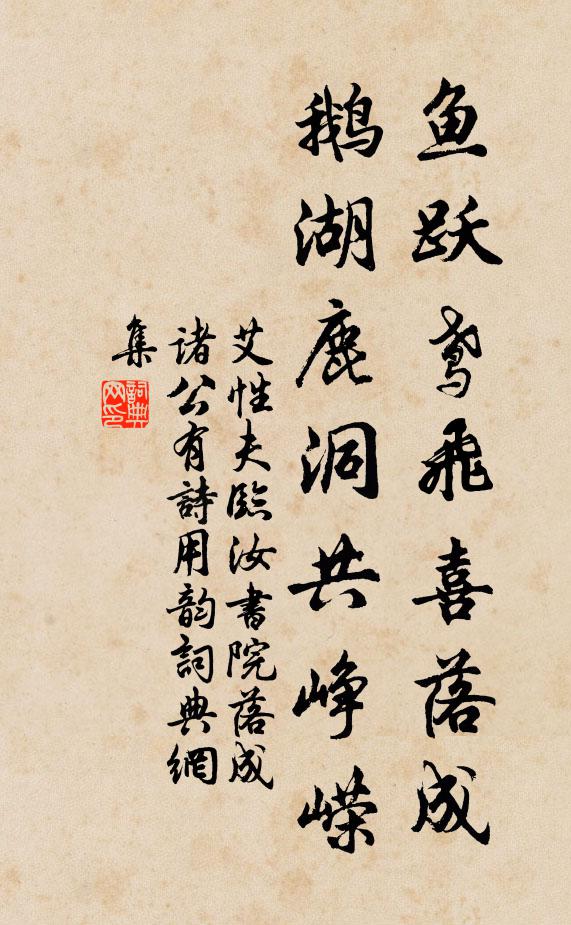 鱼跃鸢飛喜落成
鹅湖鹿洞共峥嵘
艾性夫臨汝書院落成
诸公有詩用韵詞典網
集
詞典網印